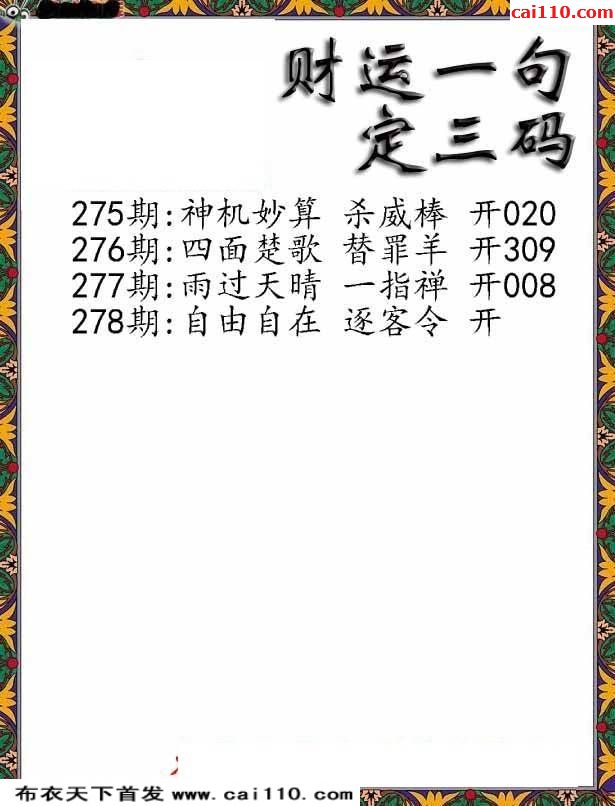 cai110.com
财运一句
定三码
275期:神机妙算 杀威棒 开020
276期:四面楚歌 替罪羊 开309
277期:雨过天晴 一指禅 开008
278期:自由自在 逐客令 开
布衣天下首发 www.cai110.com